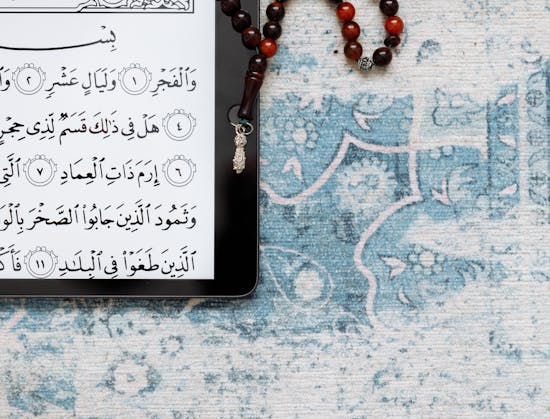 بِسْـ
وَٱلْفَجْرِ ١ وَلَيَالٍ عَشْرٍ ٢ وَٱ
٤ هَلْ فِى ذَٰلِكَ قَسَمٌ لِّذِى حِجْرٍ
٦ إِرَمَ ذَاتِ ٱلْعِمَادِ ٧ ٱلَّتِى
وَثَمُودَ ٱلَّذِينَ جَابُوا۟ ٱلصَّخْرَ بِٱلْوَ
ٱلَّذِينَ طَغَوْا۟ فِى ٱلْبِلَٰدِ ١١ فَأَكْ